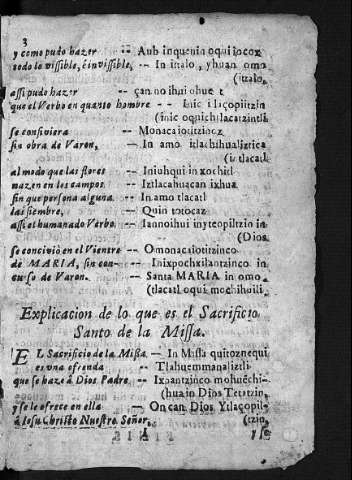 3
y como pudo hazer -- Aub inquenin oqui iocox
todo lo vissible, è invissible, -- In ittalo, yhuan omo
(itzalo,
assi pudo hazer -- çan no ihui ohuet
que el Verbo en quanto hombre -- Inic i Laçopiltzin
(inic oquichtlacatzintli
se consiviera -- Monacaiotitzinoz
sin obra de Varon, -- In amo itlachihualiztica
(tlacatl
al modo que las flores -- Iniuhqui in xochitl
nazen en los campos. -- Iztlacahuacan ixhua.
sin que persona alguna -- In amo tlacatl
las siembre, -- Quin totocaz
assi el humanado Verbo. -- Iannoihui inyteopiltzin in
(Dios.
se concivió en el Vientre -- Omonacaiotitzinco
de MARIA, sin con- -- Inixpochxilantzinco in
curso de Varon. -- Santa MARIA in omo
(tlacatl oqui mochihuili.
Explicacion de lo que es el Sacrificio
Santo de la Missa.
EL Sacrificio de la Missa -- In Missa quitoznequi
es una ofrenda -- Tlahuemmanaliztli
que se haze à Dios Padre, -- Ixpantzinco mohuechi-
(hua in Dios Tetatzin,
y se le ofrece en ella -- On can Dios Ytlaçopil-
à Jesu Christo Nuestro Señor, (tzin,